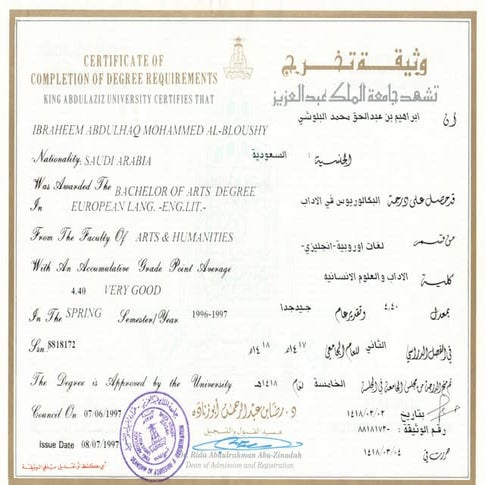 CERTIFICATE OF
COMPLETION OF DEGREE REQUIREMENTS
KING ABDULAZIZ UNIVERSITY CERTIFIES THAT
IBRAHEEM ABDULHAQ MOHAMMED AL-BLOUSHY
Nationality. SAUDI ARABIA
Was Awarded The BACHELOR OF ARTS DEGREE
In EUROPEAN LANG. -ENG.LIT.-
From The Faculty Of ARTS & HUMANITIES
With An Accumulative Grade Point Average
4.40 VERY GOOD
In The SPRING Semester/Year 1996-1997
Ssn. 8818172
The Degree is Approved by the University
Council On 07/06/1997
Issue Date 08/07/1997
وثيقة تخرج
تشهد جامعة الملك عبدالعزيز
أن ابراهيم بن عبدالحق محمد البلوشي
الجنسية: السعودية
قد حصل على درجة البكالوريوس في الاداب
من قسم لغات اوروبية-انجليزي-
كلية الاداب والعلوم الانسانية
بمعدل ٤,٤٠ وتقدير عام جيدجدا
في الفصل الدراسي الثاني للعام الجامعي ١٤١٧هـ ١٤١٨هـ
الخامسة لعام ١٤١٨هـ
بتاريخ ١٤١٨/٠٣/٠٢
رقم الوثيقة: ٨٨١٨١٧٢٠
حررت في ١٤١٨/٠٣/٠٤
د. رضا بن عبدالرحمن أبوزناده
عميد القبول والتسجيل
Dr. Rida Abdulrahman Abu-Zinadah
Dean of Admission and Registration
أي كشط أو تعديل يلغي الوثيقة